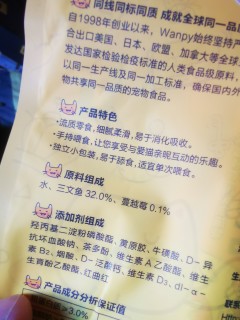 同线同标同质 成就全球同一品质
自1998年创业以来，Wanpy始终坚持产
合出口美国、日本、欧盟、加拿大等全球
发达国家检验检疫标准的人类食品级原料，
以同一生产线及同一加工标准，确保国内外
物共享同一品质的宠物食品。
产品特色
· 流质零食，细腻柔滑，易于消化吸收。
· 手持喂食，让您享受与爱猫亲昵互动的乐趣。
· 独立小包装，易于舔食，适宜单次喂食。
原料组成
水、三文鱼 32.0%、蔓越莓 0.1%
添加剂组成
羟丙基二淀粉磷酸酯、黄原胶、牛磺酸、D-异
抗坏血酸钠、茶多酚、维生素A乙酸酯、维生
素B₂、烟酸、D-泛酸钙、维生素D₃、dl-α-
生育酚乙酸酯、红曲红
产品成分分析保证值
≥3.0%